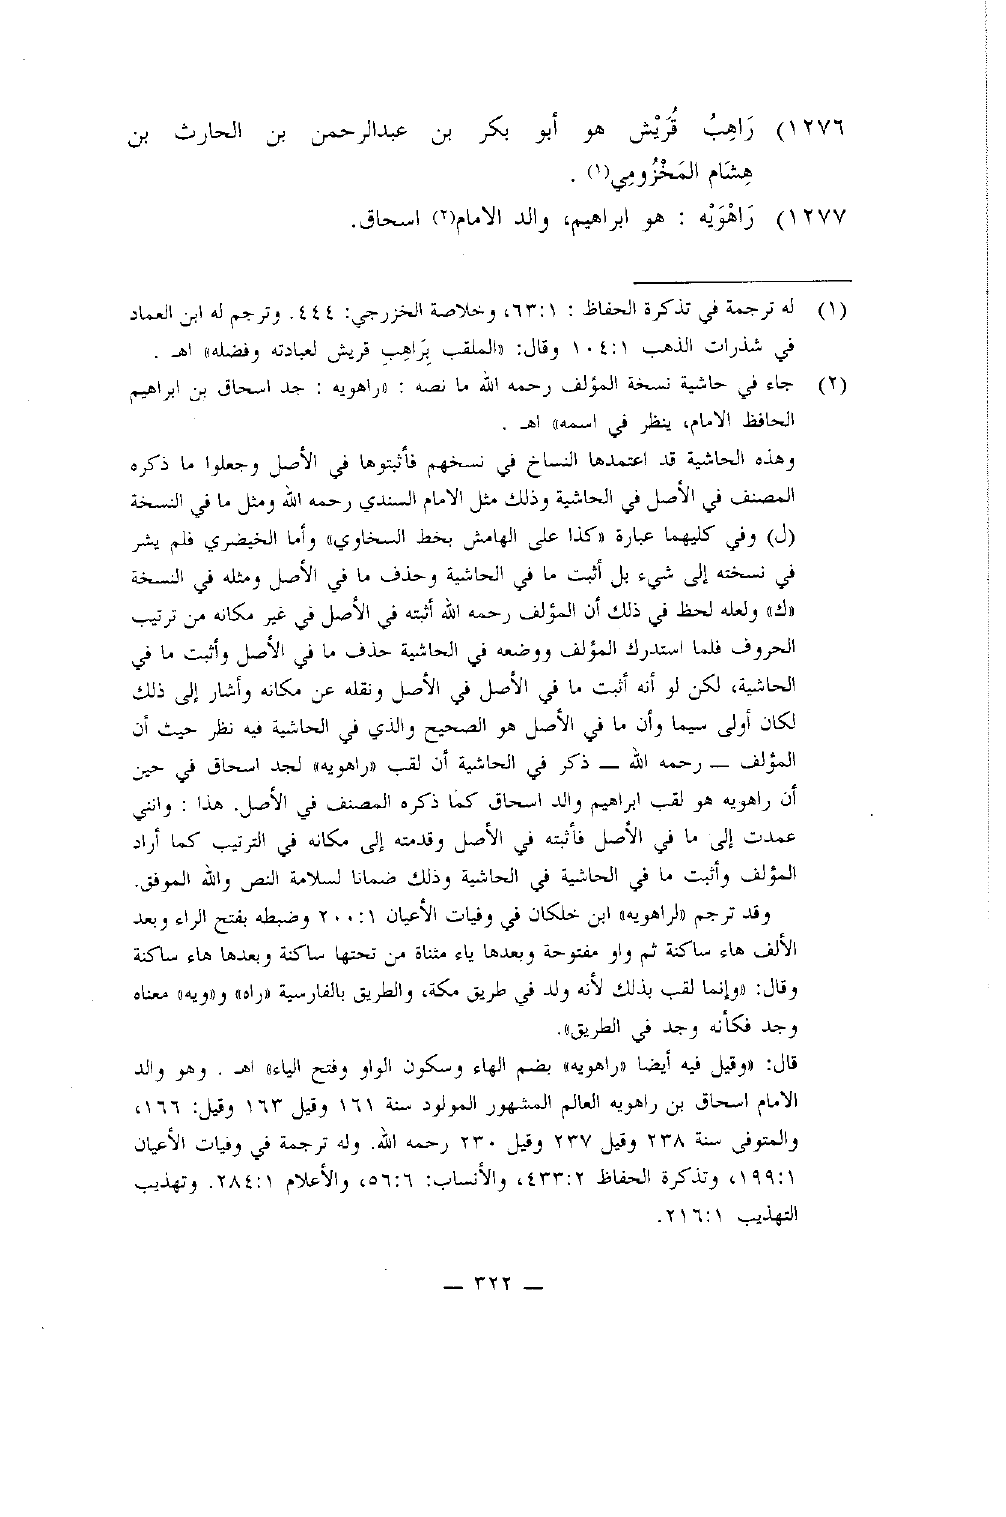 ١٢٧٦) رَاهِبُ قُرَيْش هو أبو بكر بن عبدالرحمن بن الحارث بن
هِشَام المَخْزُومِي(١) .
١٢٧٧) رَاهْوَيْه : هو ابراهيم، والد الامام(٢) اسحاق.
(١) له ترجمة في تذكرة الحفاظ : ٦٣:١، وخلاصة الخزرجي: ٤٤٤. وترجم له ابن العماد
في شذرات الذهب ١٠٤:١ وقال: «الملقب بِرَاهِبِ قريش لعبادته وفضله» اهـ .
(٢) جاء في حاشية نسخة المؤلف رحمه الله ما نصه : «راهويه : جد اسحاق بن ابراهيم
الحافظ الامام، ينظر في اسمه» اهـ .
وهذه الحاشية قد اعتمدها النساخ في نسخهم فأثبتوها في الأصل وجعلوا ما ذكره
المصنف في الأصل في الحاشية وذلك مثل الامام السندي رحمه الله ومثل ما في النسخة
(ل) وفي كليهما عبارة «كذا على الهامش بخط السخاوي» وأما الخيضري فلم يشر
في نسخته إلى شيء بل أثبت ما في الحاشية وحذف ما في الأصل ومثله في النسخة
«ك» ولعله لحظ في ذلك أن المؤلف رحمه الله أثبته في الأصل في غير مكانه من ترتيب
الحروف فلما استدرك المؤلف ووضعه في الحاشية حذف ما في الأصل وأثبت ما في
الحاشية، لكن لو أنه أثبت ما في الأصل في الأصل ونقله عن مكانه وأشار إلى ذلك
لكان أولى سيما وأن ما في الأصل هو الصحيح والذي في الحاشية فيه نظر حيث أن
المؤلف ــ رحمه الله ــ ذكر في الحاشية أن لقب «راهويه» لجد اسحاق في حين
أن راهويه هو لقب ابراهيم والد اسحاق كما ذكره المصنف في الأصل. هذا : وانني
عمدت إلى ما في الأصل فأثبته في الأصل وقدمته إلى مكانه في الترتيب كما أراد
المؤلف وأثبت ما في الحاشية في الحاشية وذلك ضمانا لسلامة النص والله الموفق.
وقد ترجم «لراهويه» ابن خلكان في وفيات الأعيان ٢٠٠:١ وضبطه بفتح الراء وبعد
الألف هاء ساكنة ثم واو مفتوحة وبعدها ياء مثناة من تحتها ساكنة وبعدها هاء ساكنة
وقال: «وإنما لقب بذلك لأنه ولد في طريق مكة، والطريق بالفارسية «راه» و«ويه» معناه
وجد فكأنه وجد في الطريق».
قال: «وقيل فيه أيضا «راهويه» بضم الهاء وسكون الواو وفتح الياء» اهـ . وهو والد
الامام اسحاق بن راهويه العالم المشهور المولود سنة ١٦١ وقيل ١٦٣ وقيل: ١٦٦،
والمتوفى سنة ٢٣٨ وقيل ٢٣٧ وقيل ٢٣٠ رحمه الله. وله ترجمة في وفيات الأعيان
١٩٩:١، وتذكرة الحفاظ ٤٣٣:٢، والأنساب: ٥٦:٦، والأعلام ٢٨٤:١. وتهذيب
التهذيب ٢١٦:١.
ــ ٣٢٢ ــ